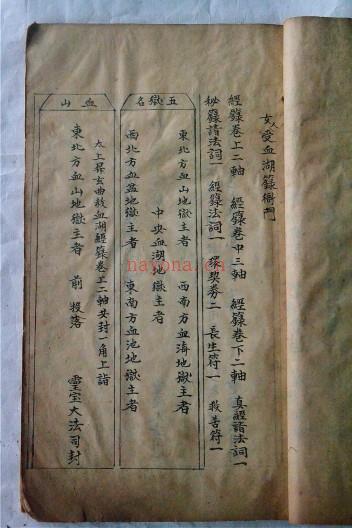 女人受血湖籙衙門
經籙卷上二軸 經籙卷中三軸 經籙卷下二軸 真經諸法詞一
秘籙諸法詞一 經籙法詞一 環契券二 長生符一 救苦符一
五獄名
東北方血山地獄主者 西南方血濤地獄主者
中央血湖地獄主者
西北方血盆地獄主者 東南方血池地獄主者
血山
太上 玄曲救血湖經籙卷上二軸共封一角上詣
東北方血山地獄主者 前 投落 靈宝大法司封
nayona.cn